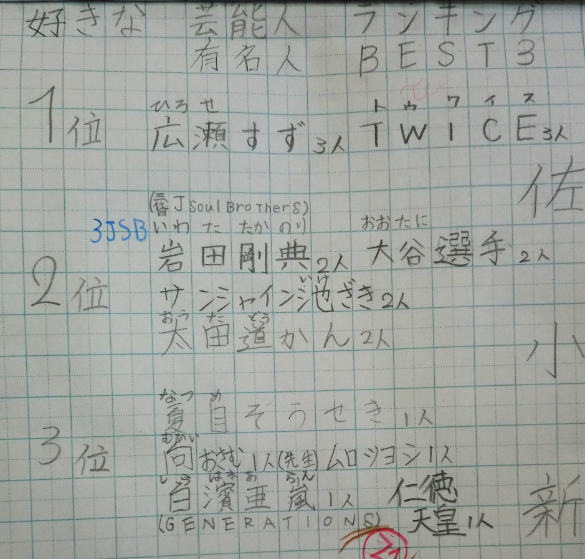 好きな 芸能人 ランキング
有名人 BEST3
ひろせ トゥワイス
1位 広瀬すず3人 TWICE3人
佐
(三代目J Soul Brothers)
3JSB いわたたかのり おおたに
岩田剛典2人 大谷選手2人
2位 サンシャイン池ざき2人
いけ
おうたどう
太田道かん2人
小
なつめ
夏目そうせき1人
むかい
3位 向おさむ1人(先生)ムロツヨシ1人
しらはまあらん
白濱亜嵐1人 仁徳
(GENERATIONS) 天皇1人
新